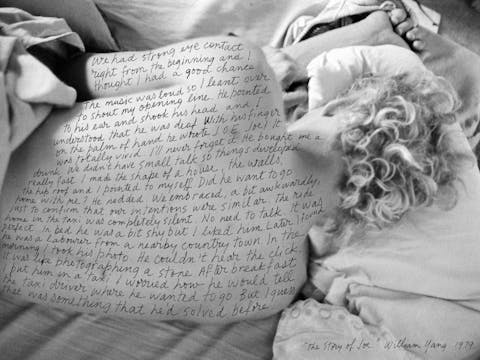 We had strong eye contact
right from the beginning and I
thought I had a good chance
The music was loud so I leant over
to shout my opening line. He pointed
to his ear and shook his head and I
understood that he was deaf. With his finger
on the palm of hand he wrote J.O.E. Joe! It
was totally vivid. I'll never forget it. He bought me a
drink. We didn't have small talk so things developed
really fast. I made the shape of a house, the walls,
the hip roof and I pointed to myself. Did he want to go
home with me? He nodded. We embraced, a bit awkwardly,
just to confirm that our intentions were similar. The ride
home in the taxi was completely silent. No need to talk. It was
perfect. In bed he was a bit shy but I liked him. Later I found
he was a labourer from a nearby country town. In the
morning I took his photo. He couldn't hear the click.
It was like photographing a stone. After breakfast
I put him in a taxi. I worried how he would tell
the taxi driver where he wanted to go. But I guess
that was something that he'd solved before.
"The Story of Joe" William Yang 1979